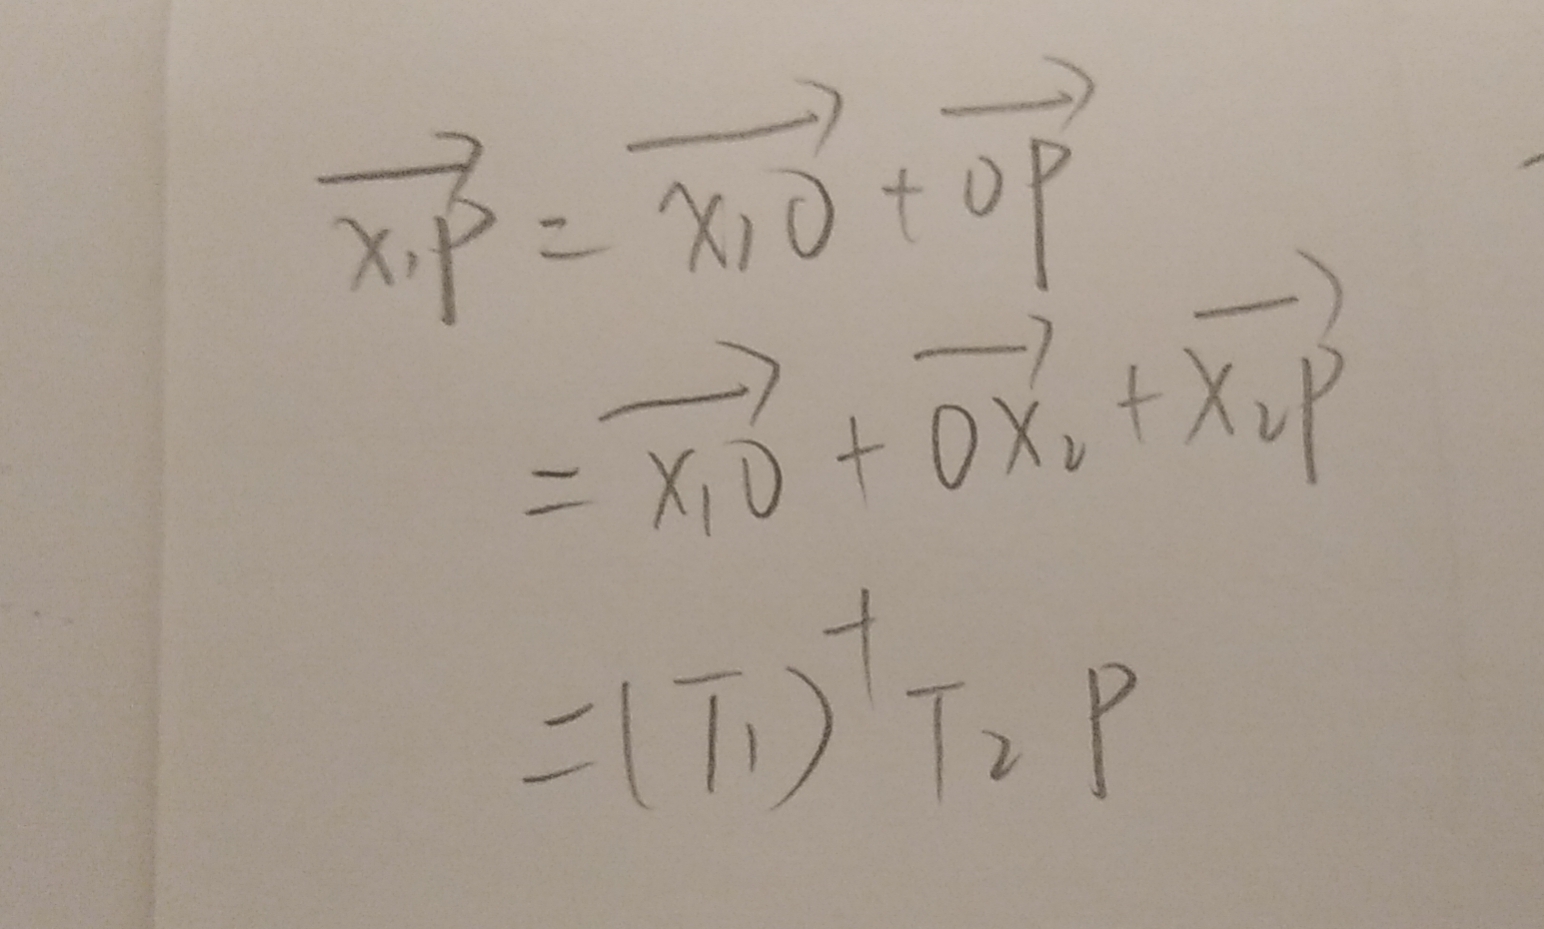 $\overrightarrow{x_1P} = \overrightarrow{x_1O} + \overrightarrow{OP}$
$= \overrightarrow{x_1O} + \overrightarrow{Ox_2} + \overrightarrow{x_2P}$
$= (T_1)^+ T_2 P$